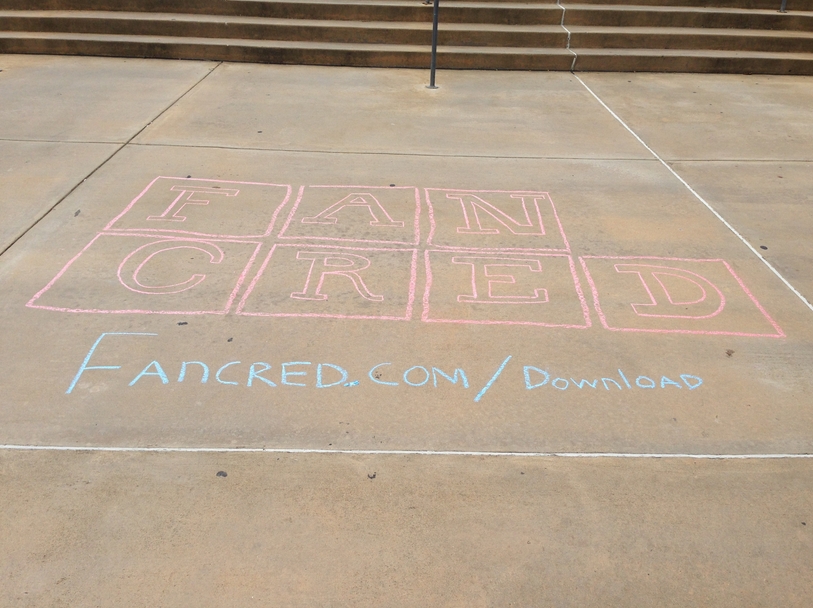 FAN
CRED
FANCRED.COM/DOWNLOAD